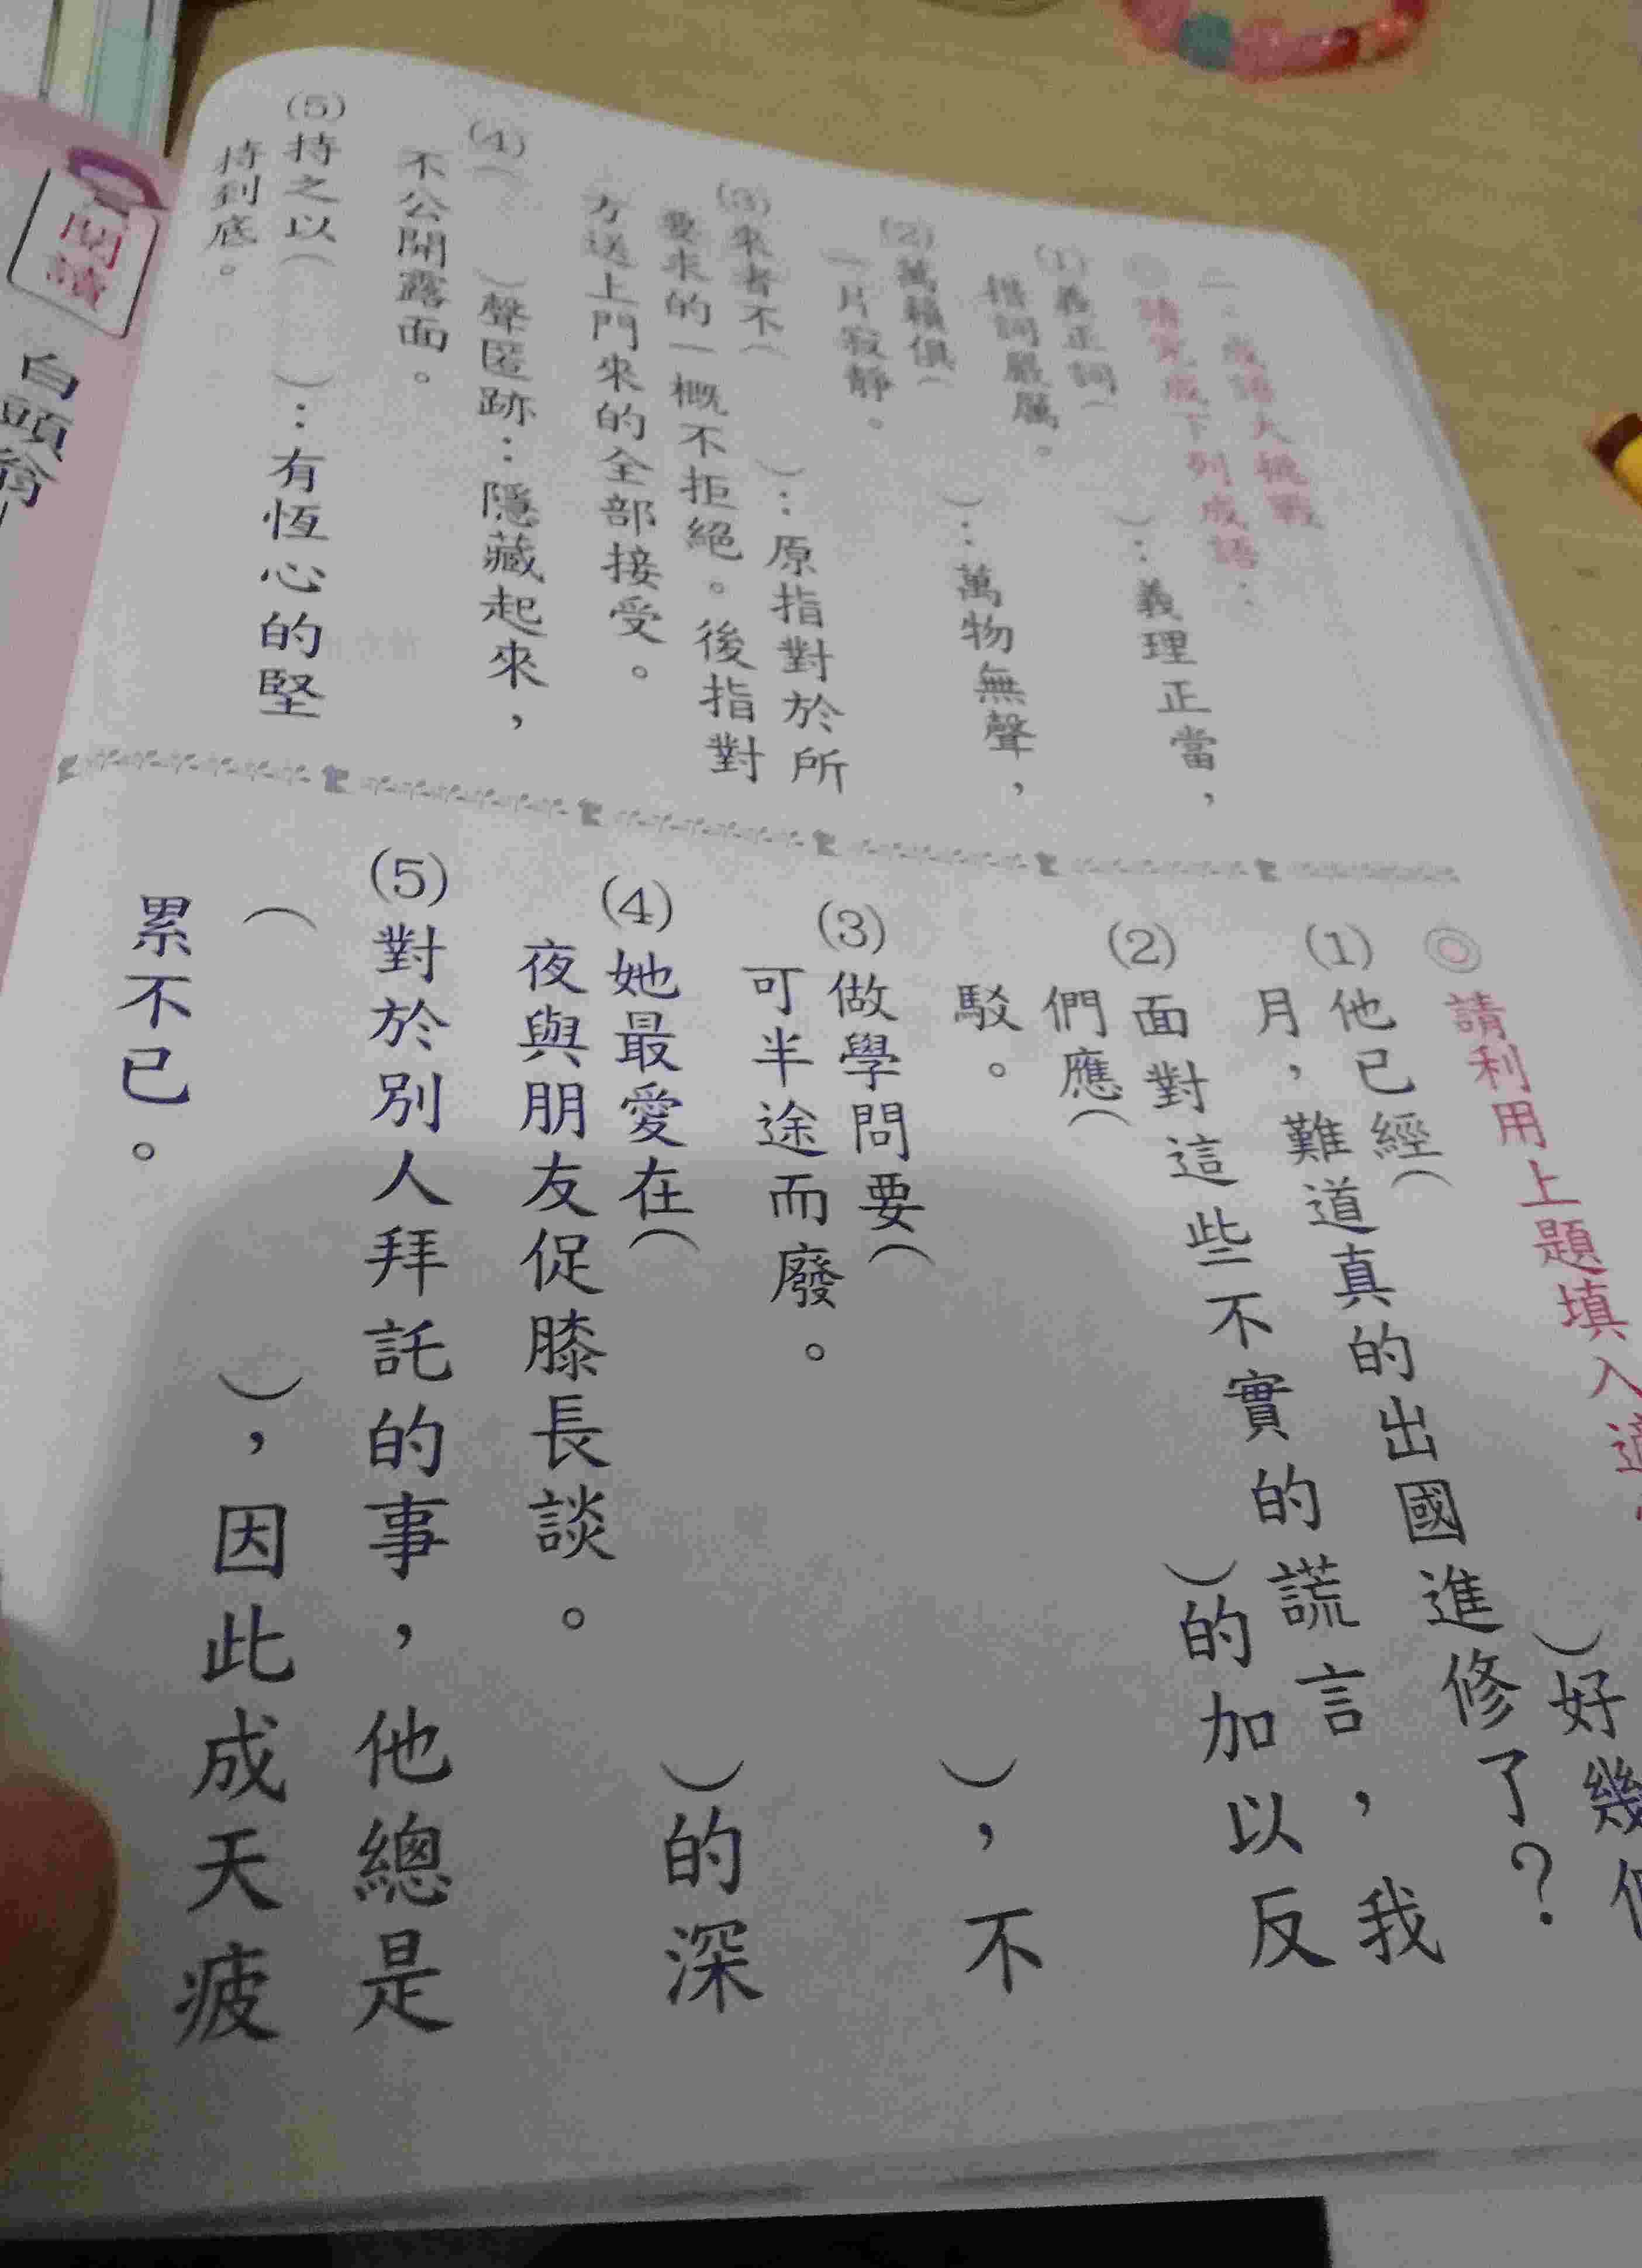 一、成語大挑戰
◎請完成下列成語：
(1)義正詞（　　）：義理正當，
措詞嚴厲。
(2)萬籟俱（　　）：萬物無聲，
一片寂靜。
(3)來者不（　　）：原指對於所
要求的一概不拒絕。後指對
方送上門來的全部接受。
(4)（　　）聲匿跡：隱藏起來，
不公開露面。
(5)持之以（　　）：有恆心的堅
持到底。
◎請利用上題填入適
(1)他已經（　　）好幾個
月，難道真的出國進修了？
(2)面對這些不實的謊言，我
們應（　　）的加以反
駁。
(3)做學問要（　　），不
可半途而廢。
(4)她最愛在（　　）的深
夜與朋友促膝長談。
(5)對於別人拜託的事，他總是
（　　），因此成天疲
累不已。
閱讀
白頭翁